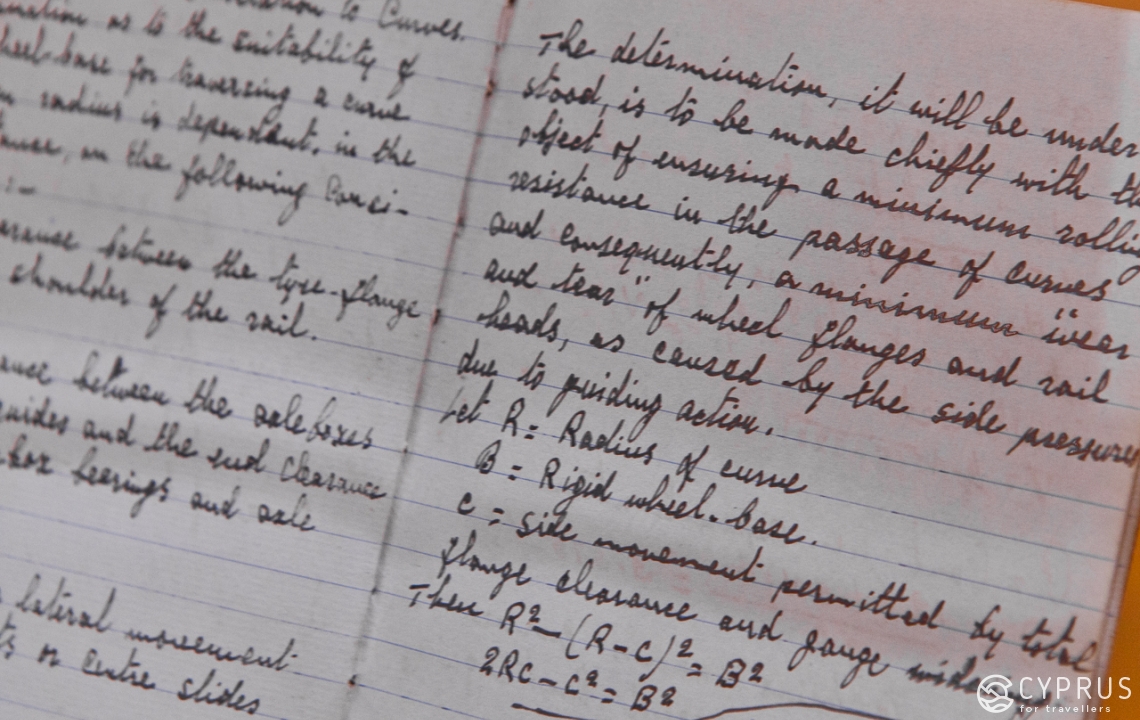 to Curves.
as to the suitability of
base for traversing a curve
radius is dependent, in the
on the following Consi-
:-
between the tyre-flange
shoulder of the rail.
between the axleboxes
guides and the end clearance
box bearings and axle
lateral movement
or centre slides
The determination, it will be under
stood, is to be made chiefly with
object of ensuring a minimum rolling
resistance in the passage of curves
and consequently, a minimum "wear
and tear" of wheel flanges and rail
heads, as caused by the side pressures
due to guiding action.
Let R = Radius of curve
B = Rigid wheel-base.
C = side movement permitted by total
flange clearance and gauge
Then R² - (R-C)² = B²
2RC - C² = B²
CYPRUS
for travellers